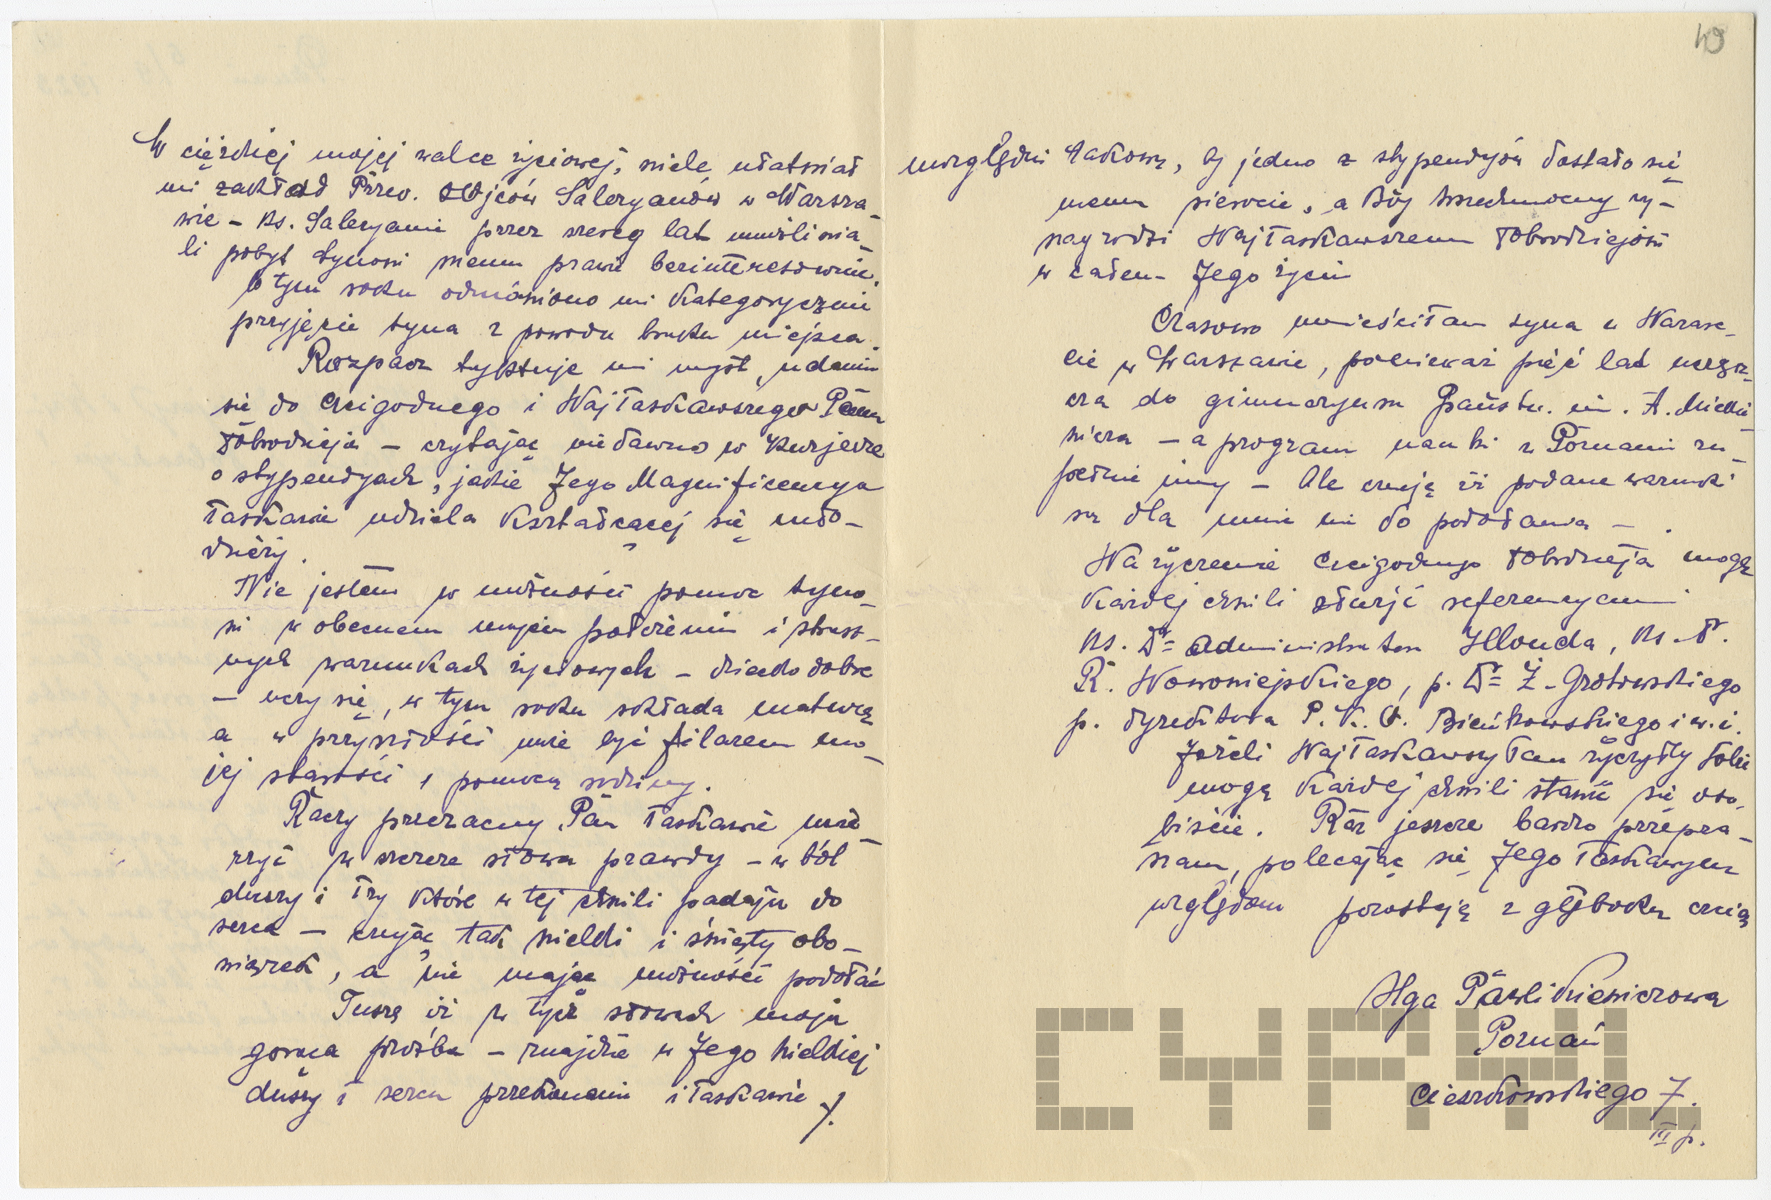 W ciężkiej mojej walce życiowej, wiele ułatwiał
mi zakład Przew. Ojców Salezyanów w Warsza-
wie – Ks. Salezyanie przez szereg lat umożliwia-
li pobyt synowi memu prawie bezinteresownie.
W tym roku odmówiono mi kategorycznie
przyjęcie syna z powodu braku miejsca.
Rozpacz dyktuje mi myśl, udania
się do Czcigodnego i Najłaskawszego Pana
Dobrodzieja – czytając niedawno w Kurjerze
o stypendyach, jakie Jego Magnificencya
łaskawie udziela kształcącej się mło-
dzieży.
Nie jestem w możności pomóc syno-
wi w obecnem mojem położeniu i strasz-
nych warunkach życiowych – dziecko dobre
– uczy się, w tym roku składa maturę
a w przyszłości może być filarem mo-
jej starości i pomocą rodziny.
Raczy przezacny Pan łaskawie uwie-
rzyć w szczere słowa prawdy – w ból
duszy i łzy które w tej chwili padają do
serca – czując tak wielki i święty obo-
wiązek, a nie mając możności podołać
Tuszę iż w tych słowach moja
gorąca prośba – znajdzie w Jego wielkiej
duszy i sercu przekonanie i łaskawie
./.
49
uwzględni takową, by jedno z stypendyów dostało się
memu sierocie, a Bóg Wszechmocny wy-
nagrodzi Najłaskawszemu Dobrodziejowi
w całem Jego życiu
Czasowo umieściłam syna w Warsz-
wie w Warszawie, ponieważ pięć lat uczęsz-
cza do gimnazyum Państw. im. A. Mickie-
wicza – a program nauki w Poznaniu zu-
pełnie inny – Ale czuję iż podane warunki
są dla mnie nie do podołania –.
Na życzenie Czcigodnego Dobrodzieja mogę
każdej chwili służyć referencyami
Ks. Dr Administratora Hlonda, Ks. Dr.
R. Nowowiejskiego, p. Dr Ż. Grotowskiego
p. dyrektora P.K.O. Bieńkowskiego i w. i.
Jeżeli Najłaskawszy Pan życzyłby sobie
mogę każdej chwili stawić się oso-
biście. Raz jeszcze bardzo przepra-
szam, polecając się Jego łaskawym
względom pozostaję z głęboką czcią
Olga Pawlikiewiczowa
Poznań
Cieszkowskiego 7.
III p.
CYRYL